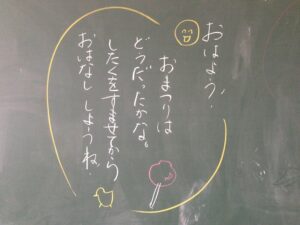 おはよう!
おまつりは
どうだったかな。
したくをすませてから
おはなし しようね.